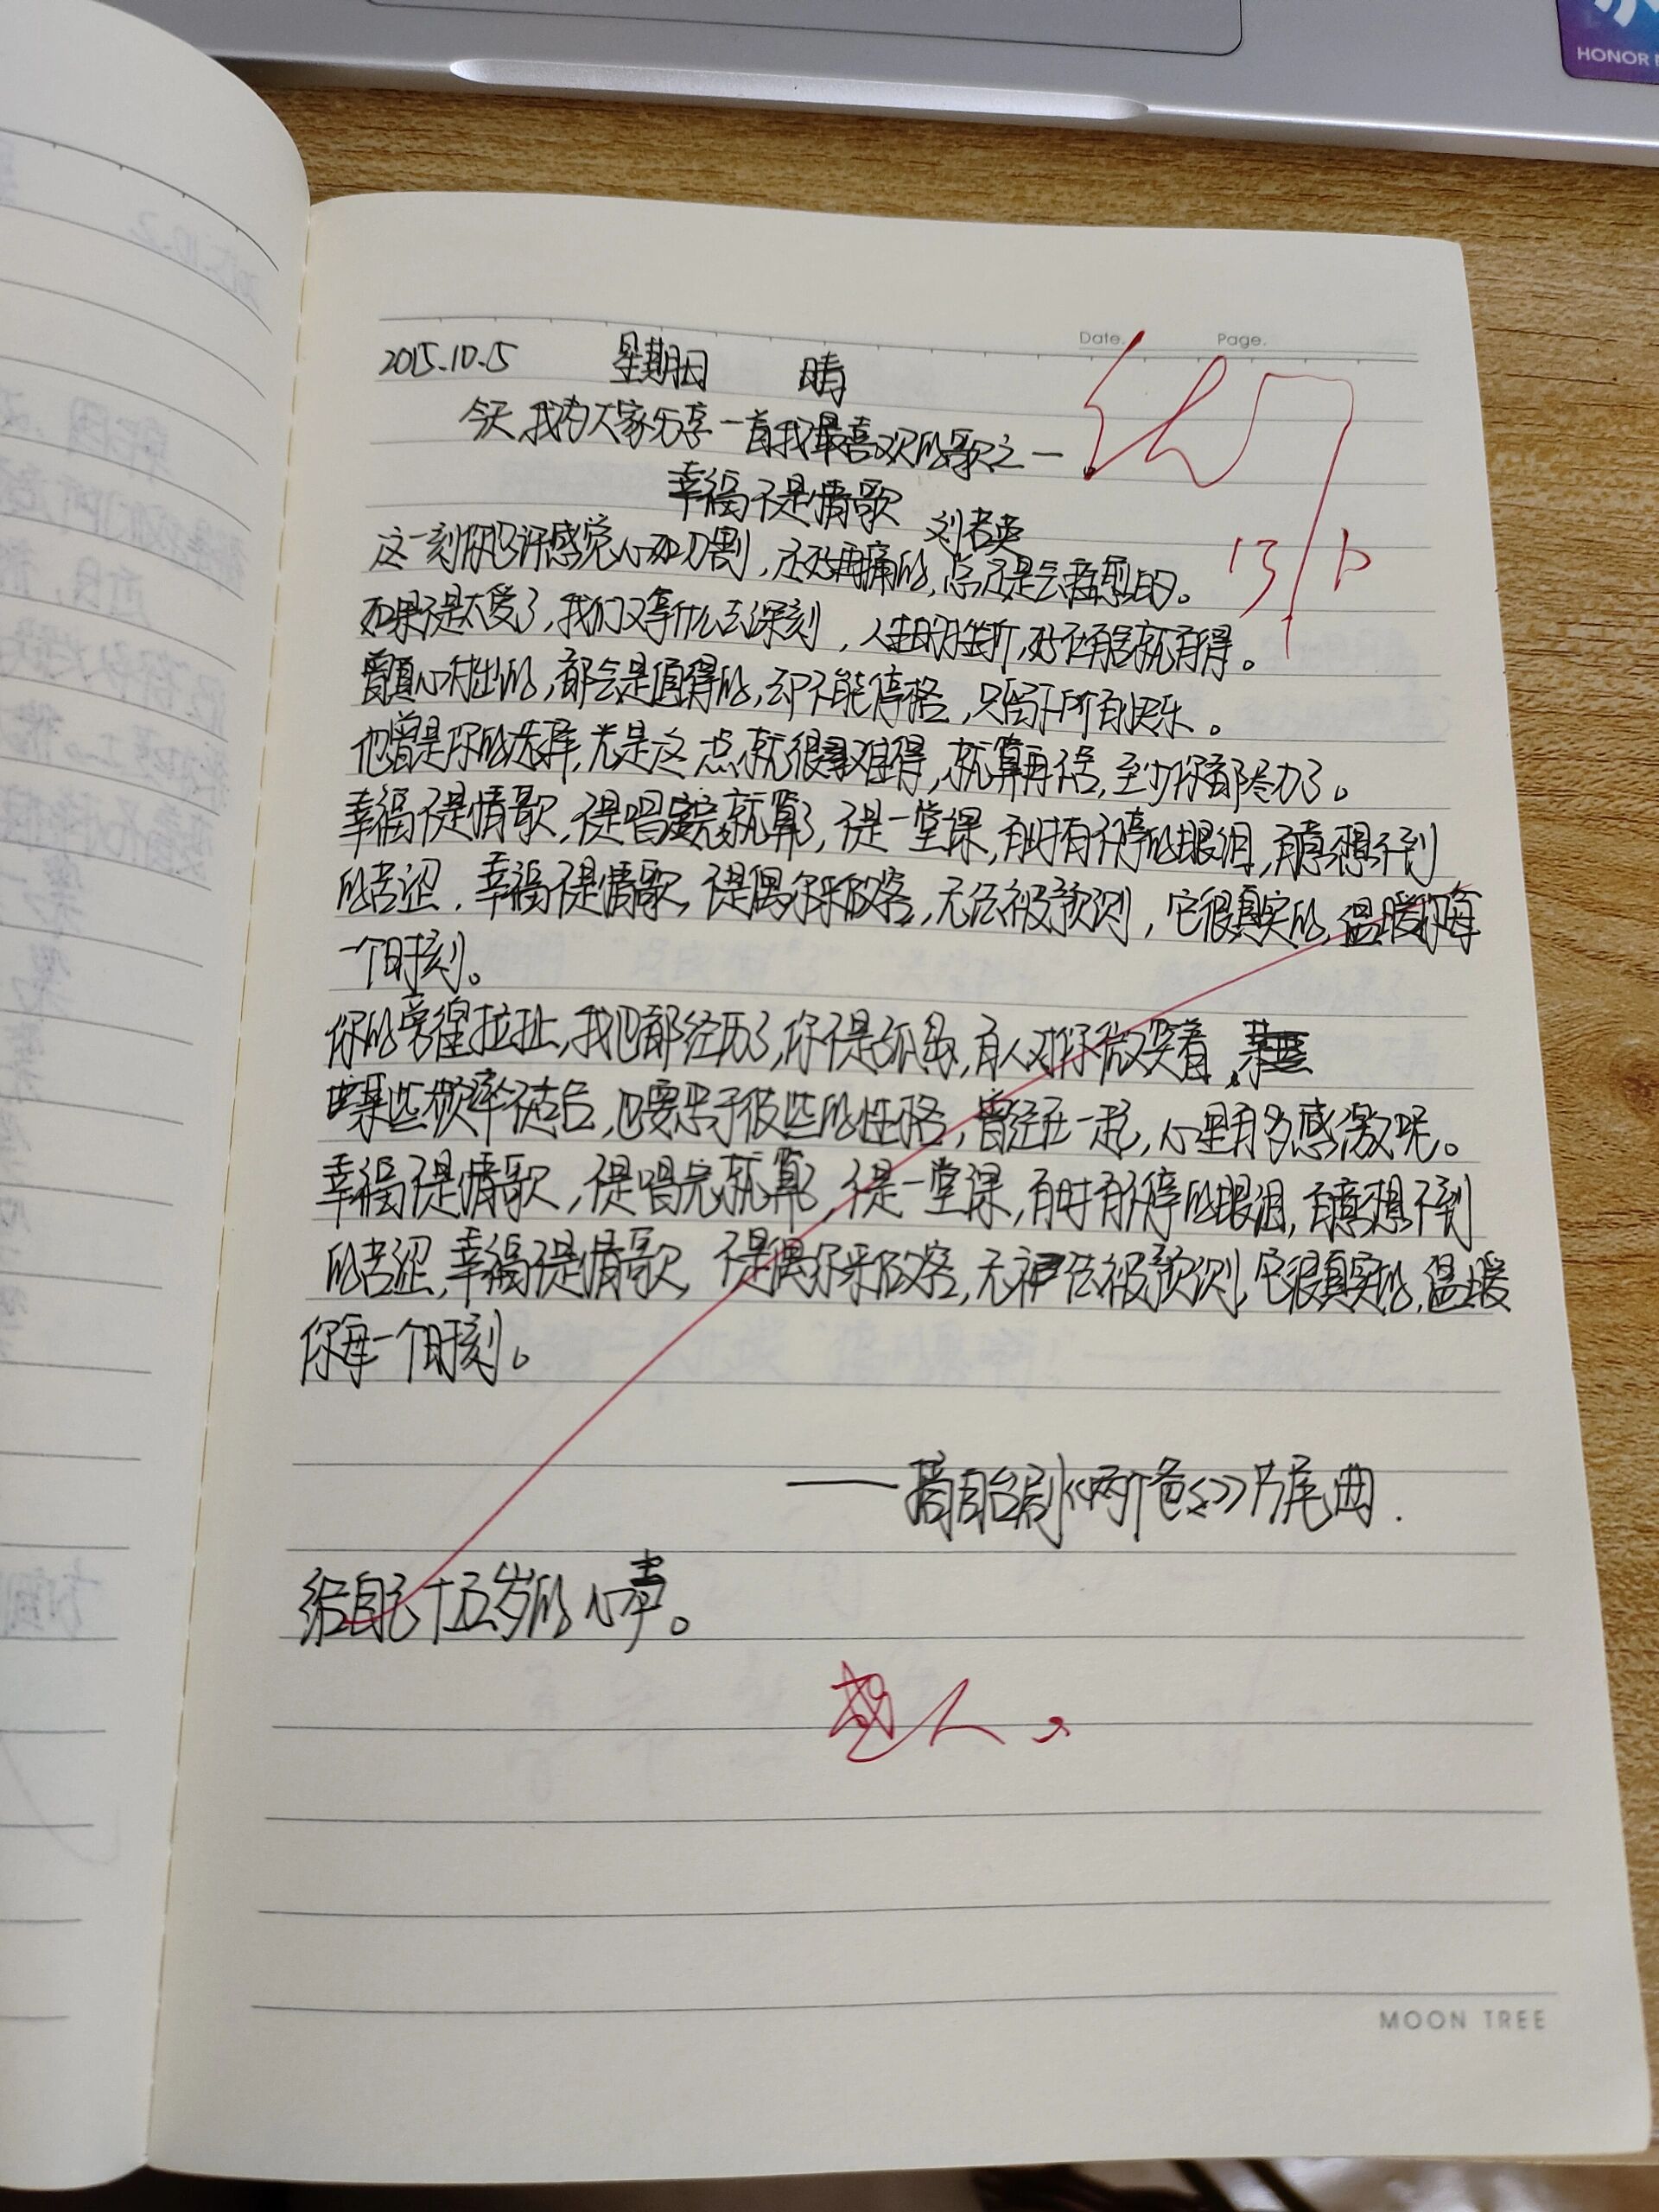 HONOR
Date.
Page.
2015.10.5 星期日 晴
今天,我为大家分享一首我最喜欢的歌之一。
幸福不是情歌 刘若英
这一刻你也许感觉心如刀割,还好再痛的,总还是会痊愈的。
如果不是太爱了,我们又拿什么去深刻,人生的挫折,好在有舍就有得。
曾真心付出的,都会是值得的,却不能停格,只留下所有快乐。
他曾是你的选择,光是这点就很难得,就算再错,至少你都尽力了。
幸福不是情歌,不是唱完就算了,不是一堂课,有时有不停的眼泪,有意想不到
的苦涩,幸福不是情歌,不是偶尔来做客,无法被预测,它很真实的,温暖你每
一个时刻。
你的旁徨拉扯,我也都经历了,你不是孤岛,有人对你微笑着,
某些频率洽合,也要忠于彼些的性格,曾经在一起,心里有多感激呢。
幸福不是情歌,不是唱完就算了,不是一堂课,有时有不停的眼泪,有意想不到
的苦涩,幸福不是情歌,不是偶尔来做客,无法被预测,它很真实的,温暖
你每一个时刻。
——摘自台剧《两个爸爸》片尾曲.
给自己十五岁的心声。
MOON TREE